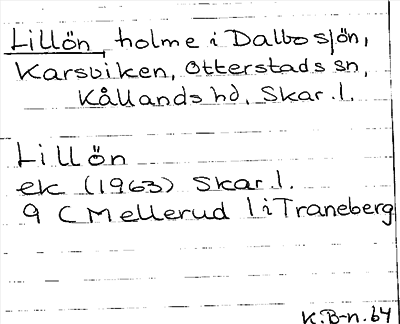 Lillön, holme i Dalbosjön,
Karsviken, Otterstads sn,
Kållands hd, Skar.l.
Lillön
ek (1963) Skar.l.
9 C Mellerud l i Traneberg
K.B-n.64